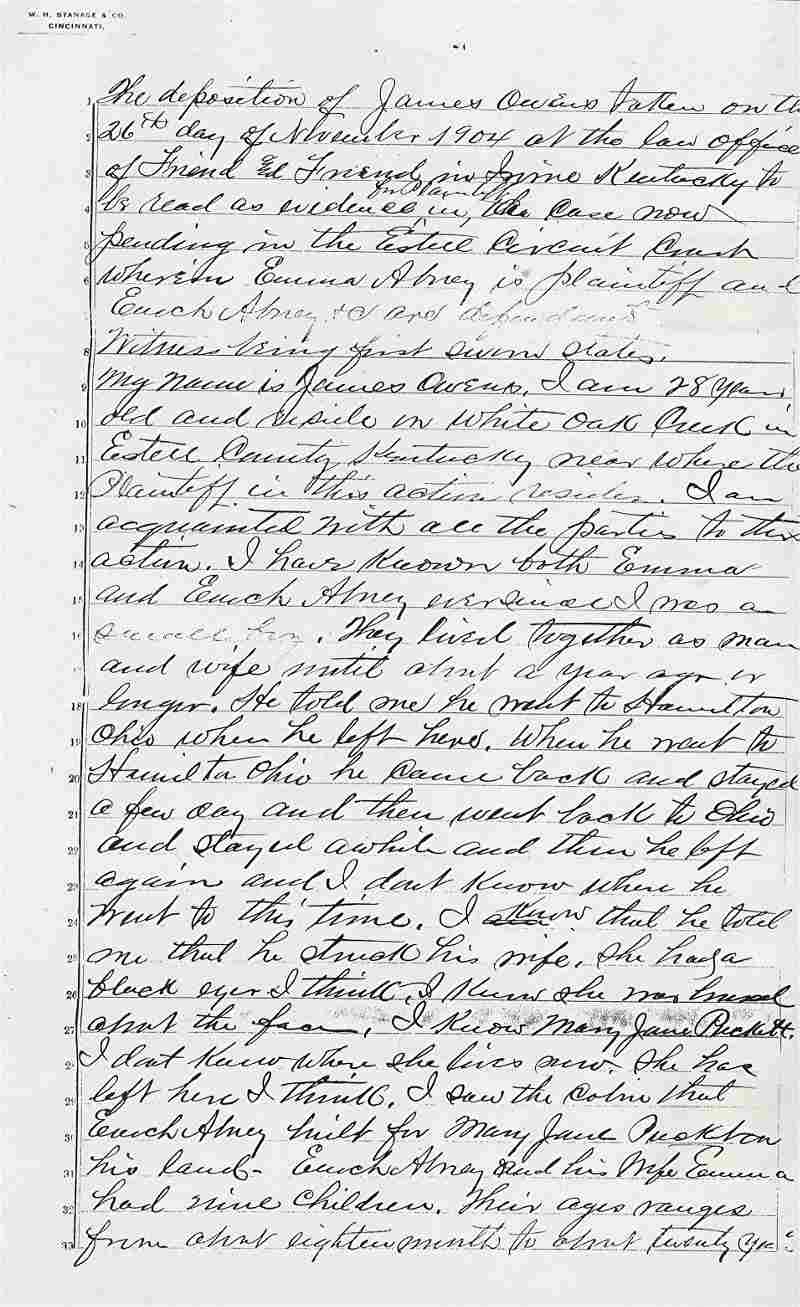 W. H. STANAGE & CO.
CINCINNATI.
1 The deposition of James Owens taken on th
2 26th day of November 1904 at the law office
3 of Friend & Friend in Irvine Kentucky to
4 be read as evidence in the case now
5 pending in the Estill Circuit Court
6 wherein Emma Abney is plaintiff and
7 Enoch Abney &c are defendants
8 Witness being first sworn states.
9 My name is James Owens. I am 28 years
10 old and reside on White Oak Creek in
11 Estill County Kentucky near where the
12 Plaintiff in this action resides. I am
13 acquainted with all the parties to this
14 action. I have known both Emma
15 and Enoch Abney ever since I was a
16 small boy. They lived together as man
and wife until about a year ago or
18 longer. He told me he went to Hamilton
19 Ohio when he left here. When he went to
20 Hamilton Ohio he came back and stayed
21 a few day and then went back to Ohio
22 and stayed awhile and then he left
23 again and I dont know where he
24 went to this time. I know that he told
25 me that he struck his wife. She had a
26 black eye I think. I know she was
27 about the face. I know Mary Jane Puckett.
2 I dont know where she lives now. She has
29 left here I think. I saw the cabin that
30 Enoch Abney built for Mary Jane Puckett on
31 his land - Enoch Abney and his Wife Emma
32 had nine children. Their ages ranges
33 from about eighteen month to about twenty